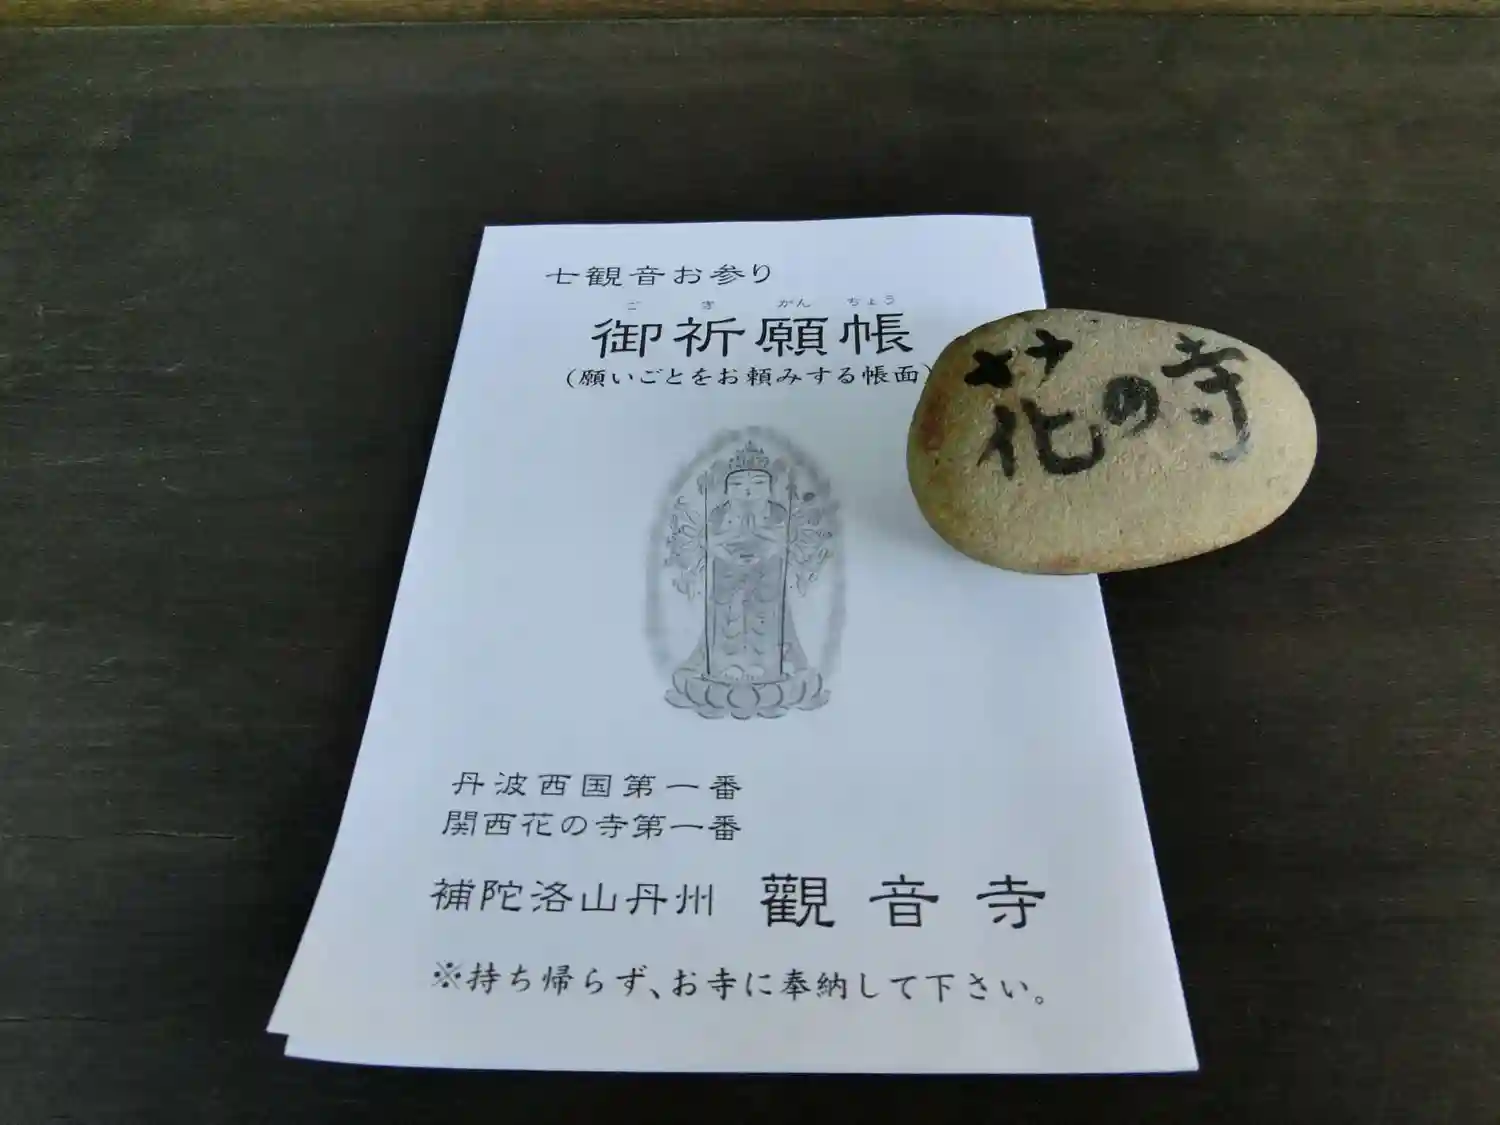 七観音お参り
ご き がん ちょう
御祈願帳
(願いごとをお頼みする帳面)
花の寺
丹波西国第一番
関西花の寺第一番
補陀洛山丹州 觀音寺
※持ち帰らず、お寺に奉納して下さい。